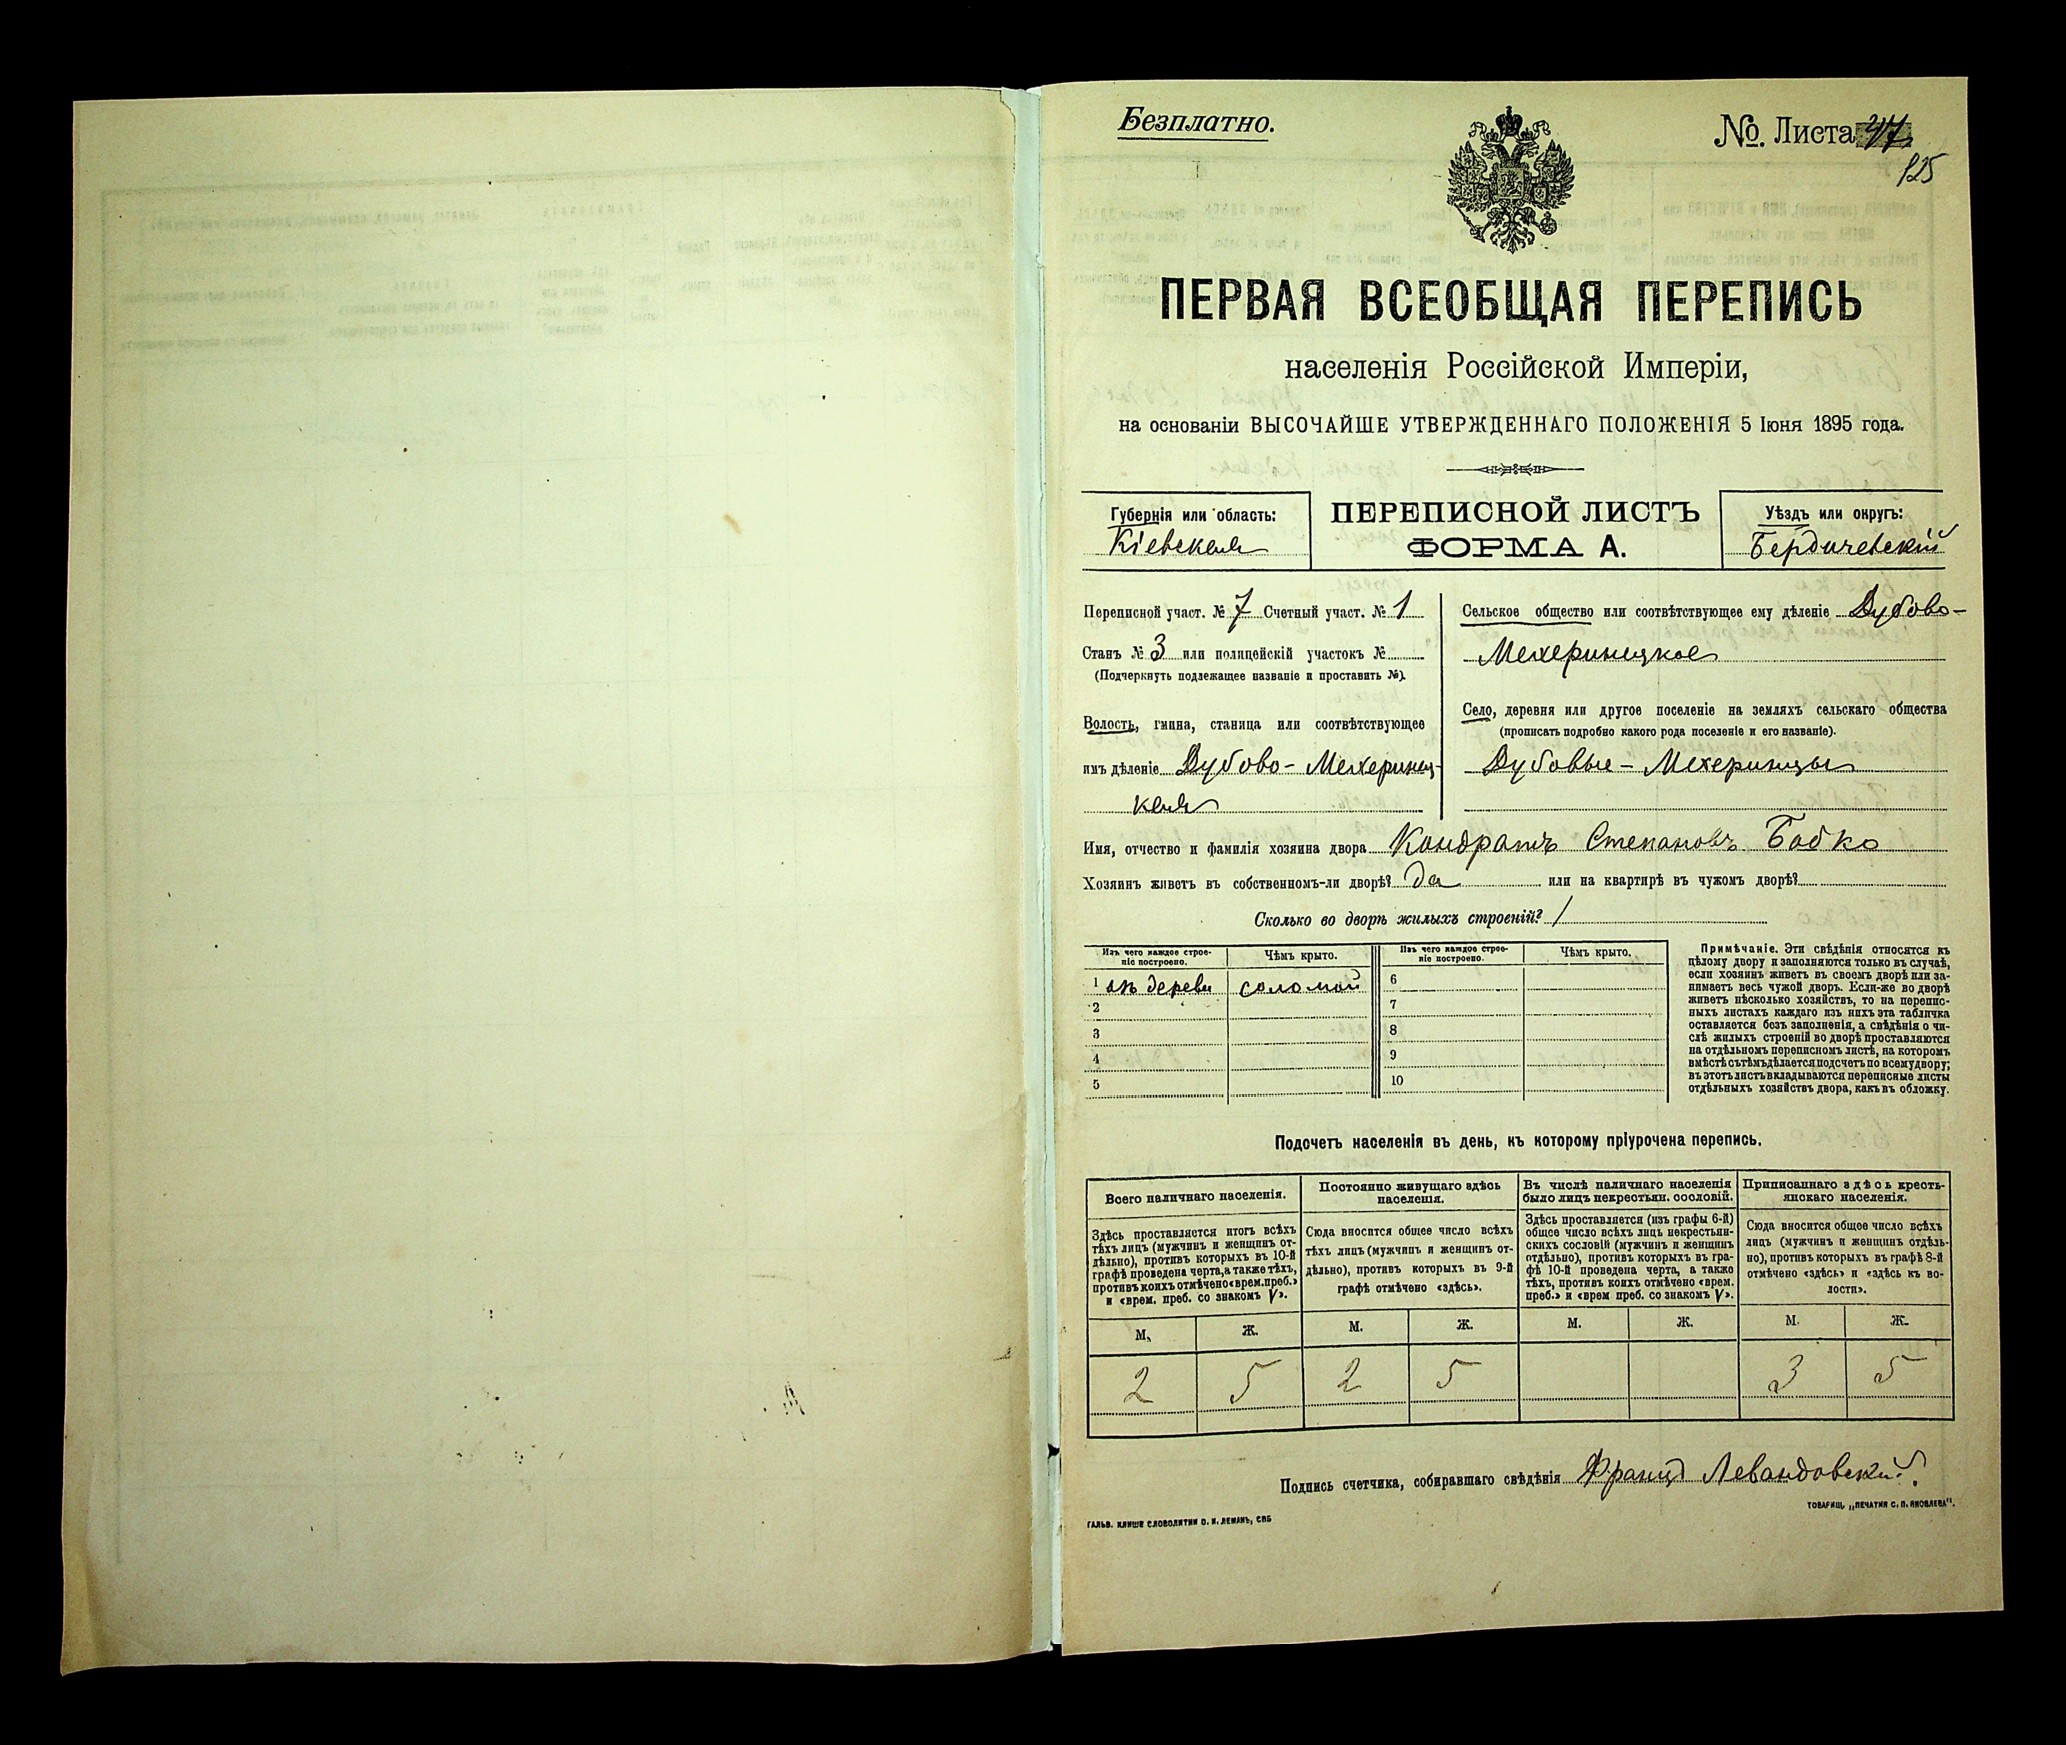 Безплатно.
№ Листа 47
125
ПЕРВАЯ ВСЕОБЩАЯ ПЕРЕПИСЬ
населенія Россійской Имперіи,
на основаніи ВЫСОЧАЙШЕ УТВЕРЖДЕННАГО ПОЛОЖЕНІЯ 5 Іюня 1895 года.
Губернія или область:
Кіевская
ПЕРЕПИСНОЙ ЛИСТЪ
ФОРМА А.
Уѣздъ или округъ:
Бердичевскій
Переписной участ. № 7 Счетный участ. № 1
Станъ № 3 или полицейскій участокъ №
(Подчеркнуть подлежащее названіе и проставить №).
Волость, гмина, станица или соотвѣтствующее
имъ дѣленіе Дубово-Мехеринец-
кая
Сельское общество или соотвѣтствующее ему дѣленіе Дубово-
Мехеринецкое
Село, деревня или другое поселеніе на земляхъ сельскаго общества
(прописать подробно какого рода поселеніе и его названіе).
Дубовые-Мехеринцы
Имя, отчество и фамилія хозяина двора Кондратъ Степановъ Бабко
Хозяинъ живетъ въ собственномъ-ли дворѣ? да или на квартирѣ въ чужомъ дворѣ?
Сколько во дворѣ жилыхъ строеній? 1
Изъ чего каждое строе-
ніе построено.
Чѣмъ крыто.
Изъ чего каждое строе-
ніе построено.
Чѣмъ крыто.
1 изъ дерева соломой 6
2 7
3 8
4 9
5 10
Примѣчаніе. Эти свѣдѣнія относятся къ
цѣлому двору и заполняются только въ случаѣ,
если хозяинъ живетъ въ своемъ дворѣ или за-
нимаетъ весь чужой дворъ. Если-же во дворѣ
живетъ нѣсколько хозяйствъ, то на перепис-
ныхъ листахъ каждаго изъ нихъ эта табличка
оставляется безъ заполненія, а свѣдѣнія о чи-
слѣ жилыхъ строеній во дворѣ проставляются
на отдѣльномъ переписномъ листѣ, на которомъ
вмѣстѣ съ тѣмъ дѣлается подсчетъ по всему двору;
въ этотъ листъ вкладываются переписные листы
отдѣльныхъ хозяйствъ двора, какъ въ обложку.
Подсчетъ населенія въ день, къ которому пріурочена перепись.
Всего наличнаго населенія.
Здѣсь проставляется итогъ всѣхъ
тѣхъ лицъ (мужчинъ и женщинъ от-
дѣльно), противъ которыхъ въ 10-й
графѣ проведена черта, а также тѣхъ,
противъ коихъ отмѣчено «врем. преб.»
и «врем. преб. со знакомъ V».
Постоянно живущаго здѣсь
населенія.
Сюда вносится общее число всѣхъ
тѣхъ лицъ (мужчинъ и женщинъ от-
дѣльно), противъ которыхъ въ 9-й
графѣ отмѣчено «здѣсь».
Въ числѣ наличнаго населенія
было лицъ некрестьян. сословій.
Здѣсь проставляется (изъ графы 6-й)
общее число всѣхъ лицъ некрестьян-
скихъ сословій (мужчинъ и женщинъ
отдѣльно), противъ которыхъ въ гра-
фѣ 10-й проведена черта, а также
тѣхъ, противъ коихъ отмѣчено «врем.
преб.» и «врем преб. со знакомъ V».
Приписаннаго здѣсь кресть-
янскаго населенія.
Сюда вносится общее число всѣхъ
лицъ (мужчинъ и женщинъ отдѣль-
но), противъ которыхъ въ графѣ 8-й
отмѣчено «здѣсь» и «здѣсь къ во-
лости».
М. Ж. М. Ж. М. Ж. М. Ж.
2 5 2 5 3 5
Подпись счетчика, собиравшаго свѣдѣнія Францъ Левандовскій
ТОВАРИЩ. „ПЕЧАТНЯ С. П. ЯКОВЛЕВА".
ГАЛЬВ. КЛИШЕ СЛОВОЛИТНИ О. И. ЛЕМАНЪ, СПБ